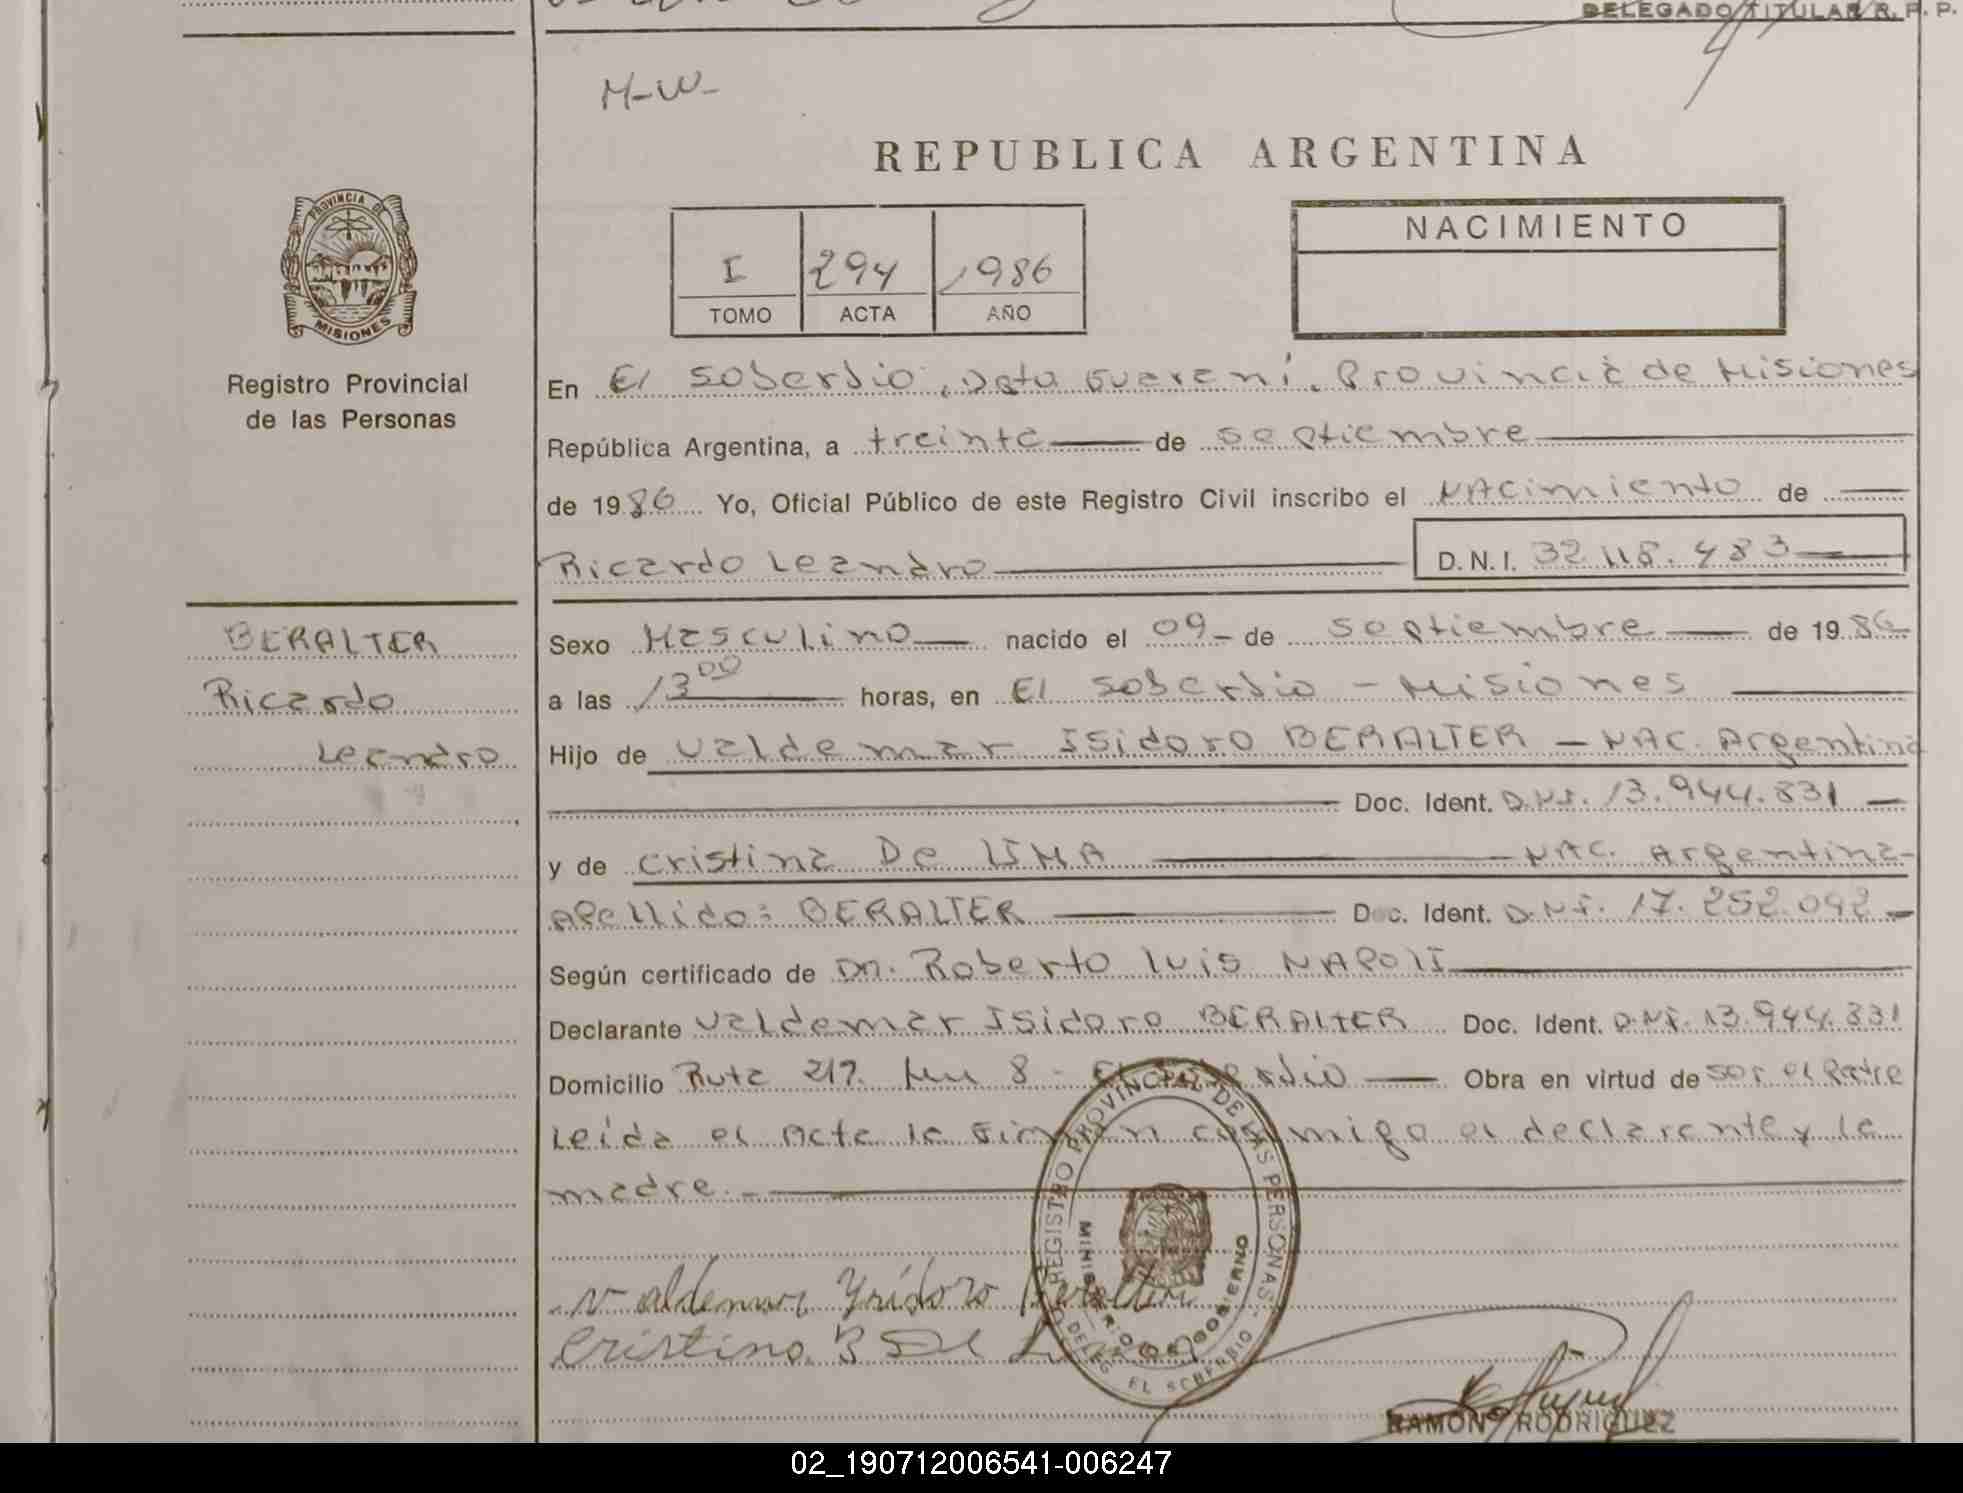 DELEGADO TITULAR R. P. P.
M-W-
REPUBLICA ARGENTINA
PROVINCIA DE
MISIONES
Registro Provincial
de las Personas
I 294 1986
TOMO ACTA AÑO
NACIMIENTO
En El Soberbio, Dpto Guaraní, Provincia de Misiones
República Argentina, a treinta de septiembre
de 1986 Yo, Oficial Público de este Registro Civil inscribo el NAcimiento de
Ricardo Leandro D.N.I. 32.118.483
BERALTER
Ricardo
Leandro
Sexo Masculino nacido el 09 - de septiembre de 1986
a las 13 00 horas, en El Soberbio - Misiones
Hijo de Valdemar Isidoro BERALTER - NAC. Argentina
Doc. Ident. D.N.I. 13.944.831
y de Cristina De LIMA NAC. Argentina-
Apellido: BERALTER Doc. Ident. D.N.I. 17.252.092
Según certificado de Dn. Roberto Luis NAPOLI
Declarante Valdemar Isidoro BERALTER Doc. Ident. D.N.I. 13.944.831
Domicilio Ruta 217. Km 8 - El Soberbio Obra en virtud de ser el Padre
Leída el Acta la firman conmigo el declarante y la
madre.-
REGISTRO PROVINCIAL DE LAS PERSONAS
MINISTERIO GOBIERNO
DELEG. EL SOBERBIO
Valdemar Ysidoro Beralter
Cristina B De Lima
RAMON RODRIGUEZ
02_190712006541-006247